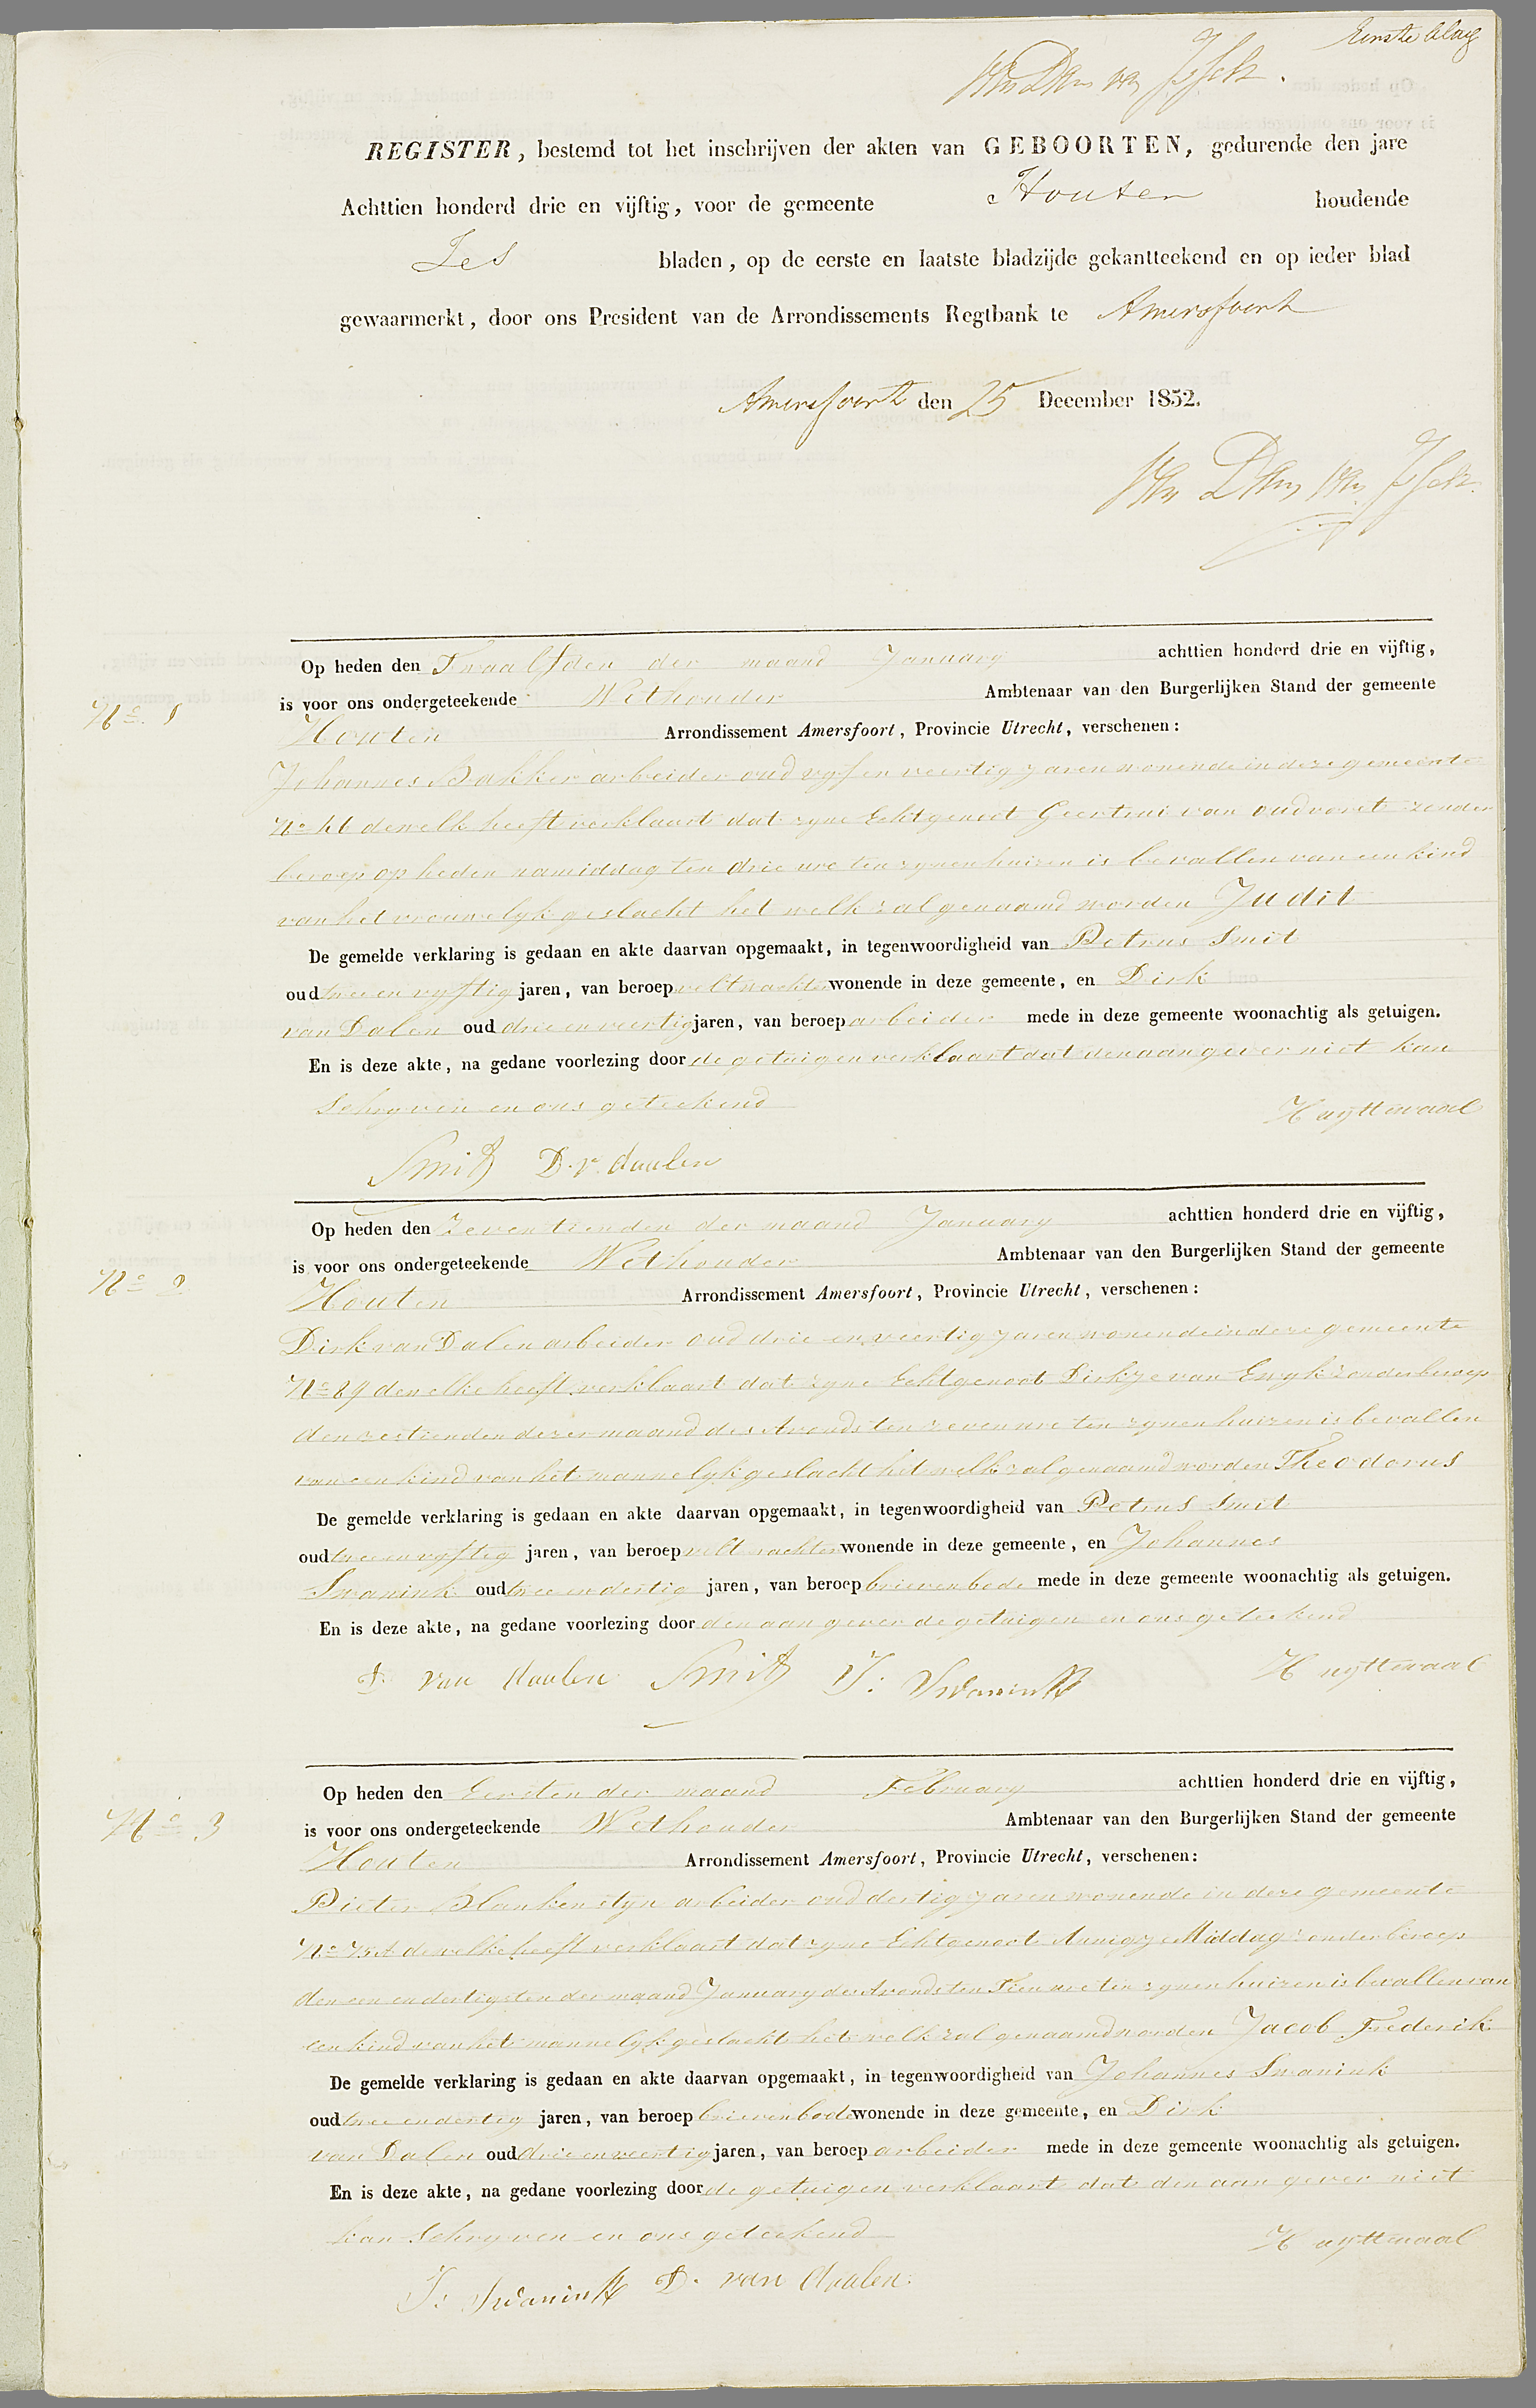 Eerste blad
van Dam van Isselt.
REGISTER, bestemd tot het inschrijven der akten van GEBOORTEN, gedurende den jare
Achttien honderd drie en vijftig, voor de gemeente Houten houdende
Zes bladen, op de eerste en laatste bladzijde gekantteekend en op ieder blad
gewaarmerkt, door ons President van de Arrondissements Regtbank te Amersfoort
Amersfoort den 25 December 1852.
van Dam van Isselt.
Op heden den Twaalfden der maand January achttien honderd drie en vijftig,
No. 1
is voor ons ondergeteekende Wethouder Ambtenaar van den Burgerlijken Stand der gemeente
Houten Arrondissement Amersfoort, Provincie Utrecht, verschenen:
Johannes Bakker arbeider oud vyf en veertig jaren wonende in deze gemeente
No dewelke heeft verklaart dat zyne Echtgenoot Geertrui van Oudvorst zonder
beroep op heden namiddag ten drie ure ten zynen huizen is bevallen van een kind
van het vrouwelyk geslacht het welk zal genaamd worden Judit
De gemelde verklaring is gedaan en akte daarvan opgemaakt, in tegenwoordigheid van Petrus Smit
oud twee en vyftig jaren, van beroep veltwachter wonende in deze gemeente, en Dirk
van Dalen oud drie en veertig jaren, van beroep arbeider mede in deze gemeente woonachtig als getuigen.
En is deze akte, na gedane voorlezing door de getuigen verklaart dat den aangever niet kan
Schryven en ons geteekend
H uyttewaal
Smit D. v. daalen
Op heden den Zeventienden der maand January achttien honderd drie en vijftig,
is voor ons ondergeteekende Wethouder Ambtenaar van den Burgerlijken Stand der gemeente
No 2
Houten Arrondissement Amersfoort, Provincie Utrecht, verschenen:
Dirk van Dalen arbeider oud drie en veertig jaren wonende in deze gemeente
No 89 den elke heeft verklaart dat zyne Echtgenoot Dirkje van Enyk zonder beroep
den zestienden dezer maand des Avonds ten zeven ure ten zynen huizen is bevallen
van een kind van het mannelyk geslacht het welk zal genaamd worden Theodorus
De gemelde verklaring is gedaan en akte daarvan opgemaakt, in tegenwoordigheid van Petrus Smit
oud twee en vyftig jaren, van beroep veltwachter wonende in deze gemeente, en Johannes
Swanink oud twee en dertig jaren, van beroep brievenbode mede in deze gemeente woonachtig als getuigen.
En is deze akte, na gedane voorlezing door den aangever de getuigen en ons geteekend
D. van daalen Smit J: Swanink H uyttewaal
Op heden den Eersten der maand February achttien honderd drie en vijftig,
No 3
is voor ons ondergeteekende Wethouder Ambtenaar van den Burgerlijken Stand der gemeente
Houten Arrondissement Amersfoort, Provincie Utrecht, verschenen:
Pieter Blankenstyn arbeider oud dertig jaren wonende in deze gemeente
No dewelke heeft verklaart dat zyne Echtgenoot Annigje Middag zonder beroep
den een en dertigsten der maand January des Avonds ten Tien ure ten zynen huizen is bevallen van
een kind van het mannelyk geslacht het welk zal genaamd worden Jacob Frederik
De gemelde verklaring is gedaan en akte daarvan opgemaakt, in tegenwoordigheid van Johannes Swanink
oud twee en dertig jaren, van beroep brievenbode wonende in deze gemeente, en Dirk
van Dalen oud drie en veertig jaren, van beroep arbeider mede in deze gemeente woonachtig als getuigen.
En is deze akte, na gedane voorlezing door de getuigen verklaart dat den aangever niet
kan Schryven en ons geteekend
H uyttewaal
J: Swanink D. van daalen.